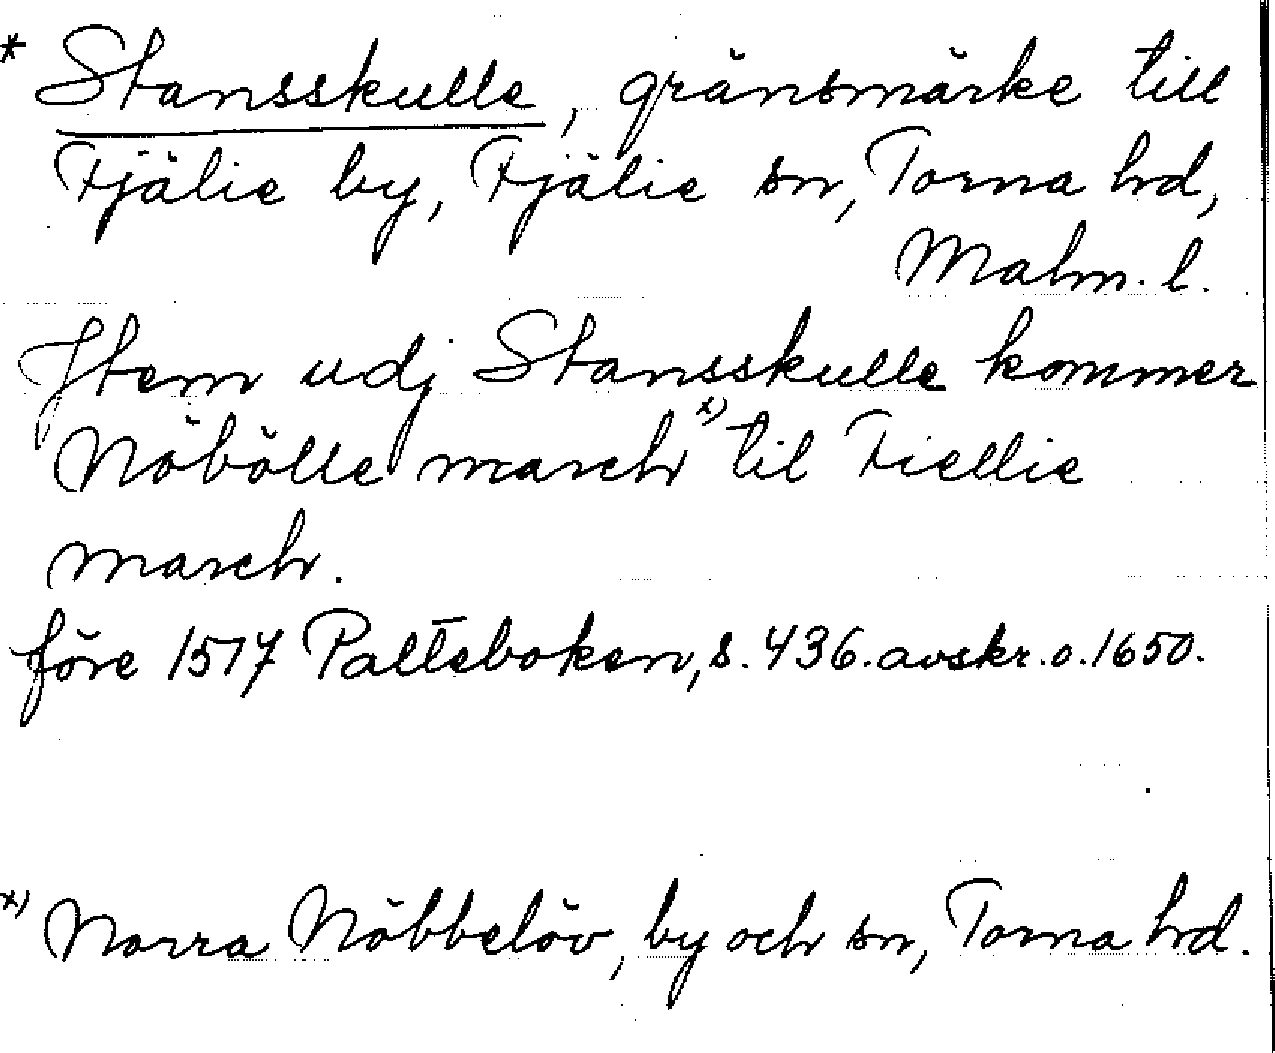 * Stansskulle, gränsmärke till
Fjälie by, Fjälie sn, Torna hd,
Malm. l.
Item udj Stansskulle kommer
Nöbölle march x) til Fiellie
march.
före 1517 Palteboken, s. 436. avskr. o. 1650.
x) Norra Nöbbelöv, by och sn, Torna hd.